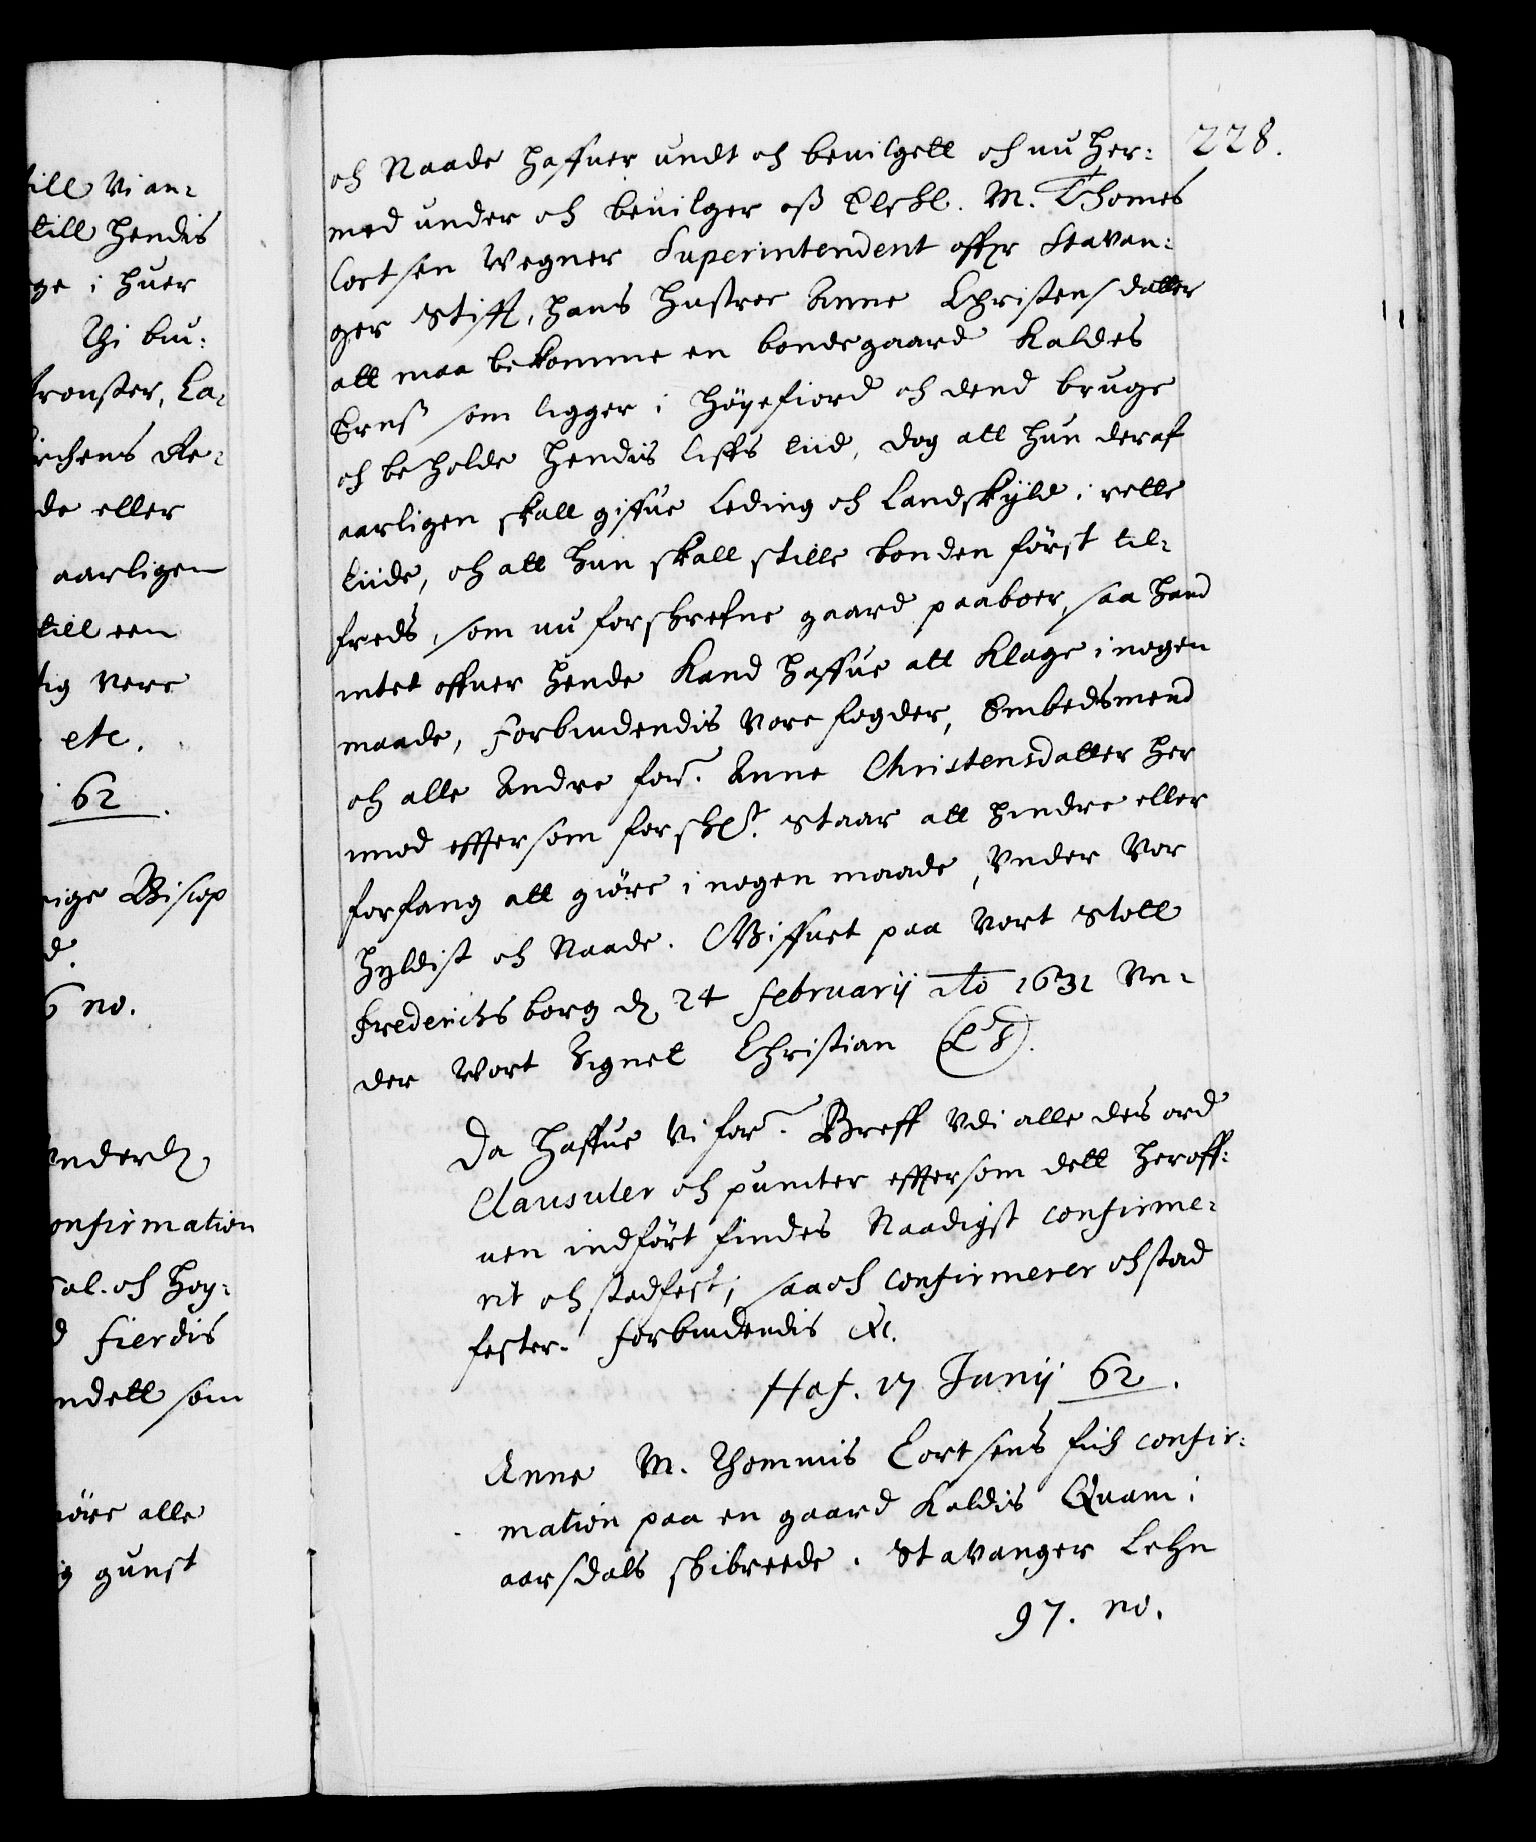 till Vi an-
till hendis
ge i huer
Thi bıu:
La-
irchens Re-
de eller
aarligen
till een
tig Vere
etc.
62.
rige Biscop
d.
6 no.
onfirmation
Sal. och Hoy:
d fierdis
ndett som
iöre alle
ig gunst
228.
och Naade haffuer undt och beuilgett och nu her:
med under och beuilger oß Elschl. M. Thomes
Cortsen Wegner Superintendent offr Stavan:
ger Stifft, hans hustroe Anne Christensdatter
att maa bekomme en bondegaard Kaldes
Erns som ligger i Høyefiord och dend bruge
och beholde hendis liffs tiid, dog att hun deraf
aarligen skall giffue Leding och Landskyld i rette
tiide, och att hun skall stille bonden först til-
freds, som nu forskrefne gaard paaboer, saa hand
intet offuer hende Kand haffue att Klage i nogen
maade, Forbiudendis Vore fogder, Embedsmend
och alle Andre for.ne Anne Christensdatter her
imod effter som forsch.t staar att hindre eller
forfang att giöre i nogen maade, Vnder Vor
Hyldist och Naade. Giffuet paa Vort Slott
Frederichsborg d. 24 februarij Ao 1631 Vn-
der Vort Signet Christian (L S).
Da haffue Vi for.ne Breff Vdi alle dets ord
Clausuler och puncter effter som dett heroff-
uen indfört findes Naadigst confirme-
rit och stedfest; saa och confirmerer och stad
fester. Forbiudendis etc.
Haf. 17 Junij 62.
Anne M. Thommis Cortsens fich confir-
mation paa en gaard Kaldis Quam i
aarsdals schibreede. Stavanger Lehn
97. no.